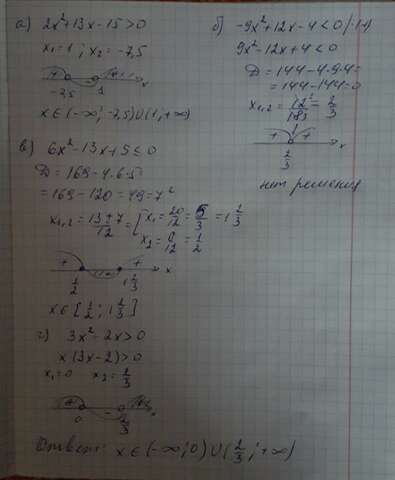 а) 2x²+13x-15>0
x₁=1 ; x₂=-7,5
+ - + x
-7,5 1
x∈(-∞; -7,5)∪(1; +∞)
б) -9x²+12x-4<0 /·(-1)
9x²-12x+4<0
D=144-4·9·4=
=144-144=0
x₁,₂=12/18=2/3
+ + x
2/3
нет решения
в) 6x²-13x+5≤0
D=169-4·6·5
=169-120=49=7²
x₁,₂=(13±7)/12=[x₁=20/12=5/3=1 2/3
x₂=6/12=1/2
+ - + x
1/2 1 2/3
x∈[1/2; 1 2/3]
г) 3x²-2x>0
x(3x-2)>0
x₁=0 x₂=2/3
+ - + x
0 2/3
Ответ: x∈(-∞; 0)∪(2/3; +∞)